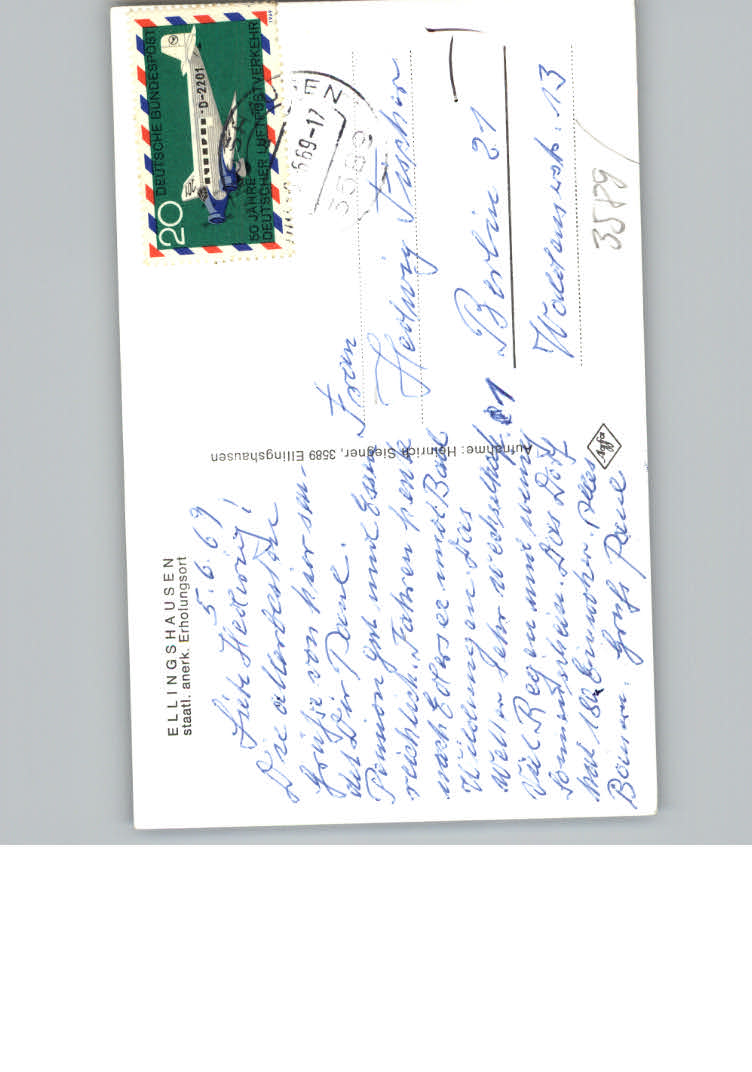 ELLINGSHAUSEN
staatl. anerk. Erholungsort
5.6.69
Liebe Hedwig!
Die allerbesten
Grüße von hier sen-
det Dir Paul.
Pension gut und Essen
reichlich. Fahren heute
nach Edersee und Bad
Wildungen. Das
Wetter sehr wechselhaft
viel Regen und wenig
Sonnenschein. Das Dorf
hat 180 Einwohner. Alles
Bauern. Gruß Paul
Aufnahme: Heinrich Siegner, 3589 Ellingshausen
Agfa
DEUTSCHE BUNDESPOST
20
D-2201
50 JAHRE
DEUTSCHER LUFTPOSTVERKEHR
1969
6.69-17
3589
Frau
Hedwig Fischer
1 Berlin 21
Waldenserstr. 13
3589